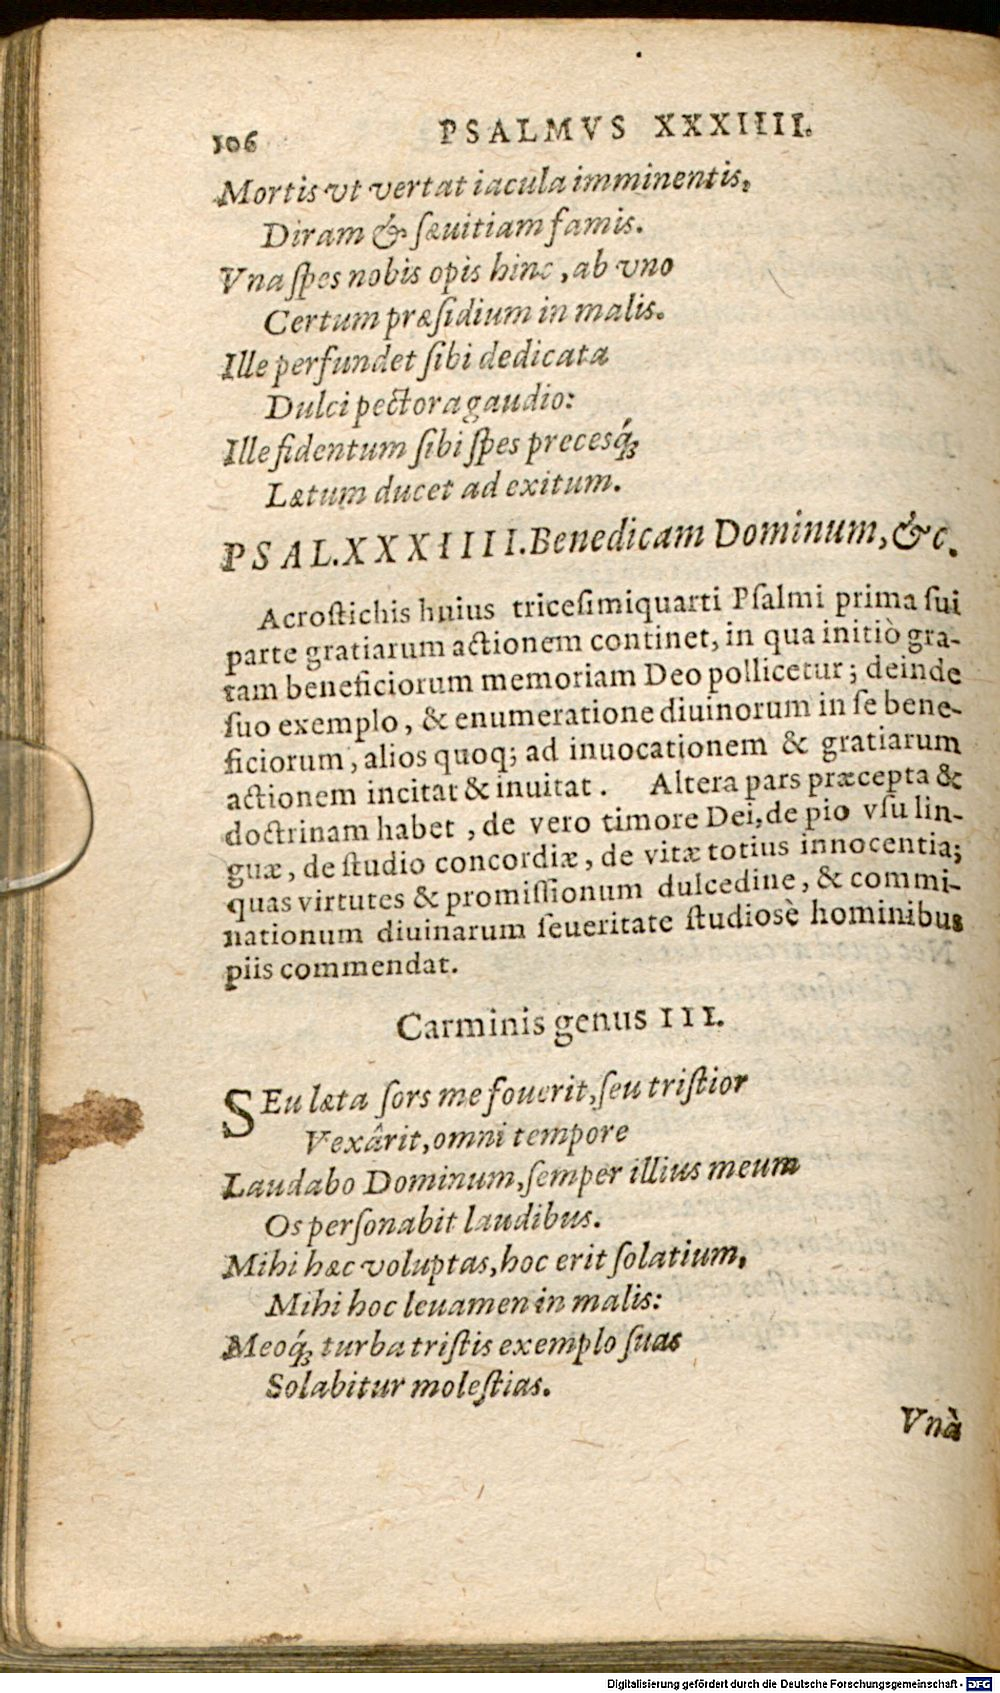 106 PSALMVS XXXIIII.
Mortis vt vertat iacula imminentis,
Diram & sæuitiam famis.
Vna spes nobis opis hinc, ab vno
Certum præsidium in malis.
Ille perfundet sibi dedicata
Dulci pectora gaudio:
Ille fidentum sibi spes precesq́;
Lætum ducet ad exitum.
PSAL. XXXIIII. Benedicam Dominum, &c.
Acrostichis huius tricesimiquarti Psalmi prima sui
parte gratiarum actionem continet, in qua initiò gra-
tam beneficiorum memoriam Deo pollicetur; deinde
suo exemplo, & enumeratione diuinorum in se bene-
ficiorum, alios quoq; ad inuocationem & gratiarum
actionem incitat & inuitat. Altera pars præcepta &
doctrinam habet, de vero timore Dei, de pio vsu lin-
guæ, de studio concordiæ, de vitæ totius innocentia;
quas virtutes & promissionum dulcedine, & commi-
nationum diuinarum seueritate studiosè hominibus
piis commendat.
Carminis genus III.
SEu læta sors me fouerit, seu tristior
Vexârit, omni tempore
Laudabo Dominum, semper illius meum
Os personabit laudibus.
Mihi hæc voluptas, hoc erit solatium,
Mihi hoc leuamen in malis:
Meoq́; turba tristis exemplo suas
Solabitur molestias.
Vnà
Digitalisierung gefördert durch die Deutsche Forschungsgemeinschaft - DFG